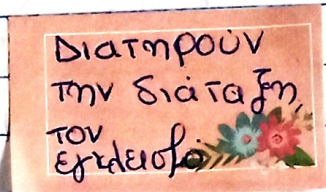 Διατηρούν
την διάταξη,
τον
εγκλεισμό